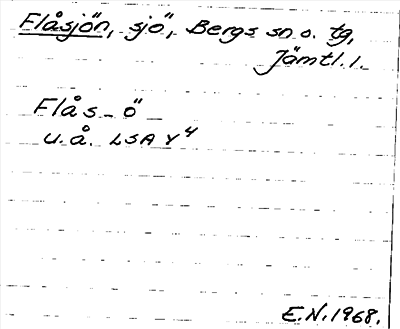 Flåsjön, sjö, Bergs sn o. tg,
Jämtl. l.
Flås_ö_
u.å. LSA Y4
E.N. 1968.